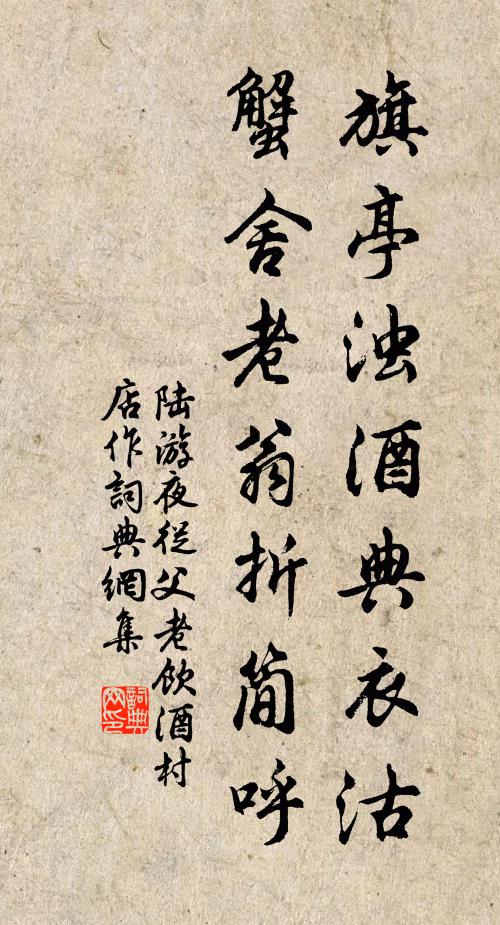 旗亭浊酒典衣沽
蟹舍老翁折简呼
陆游夜從父老飲酒村
店作詞典網集
詞典
网印